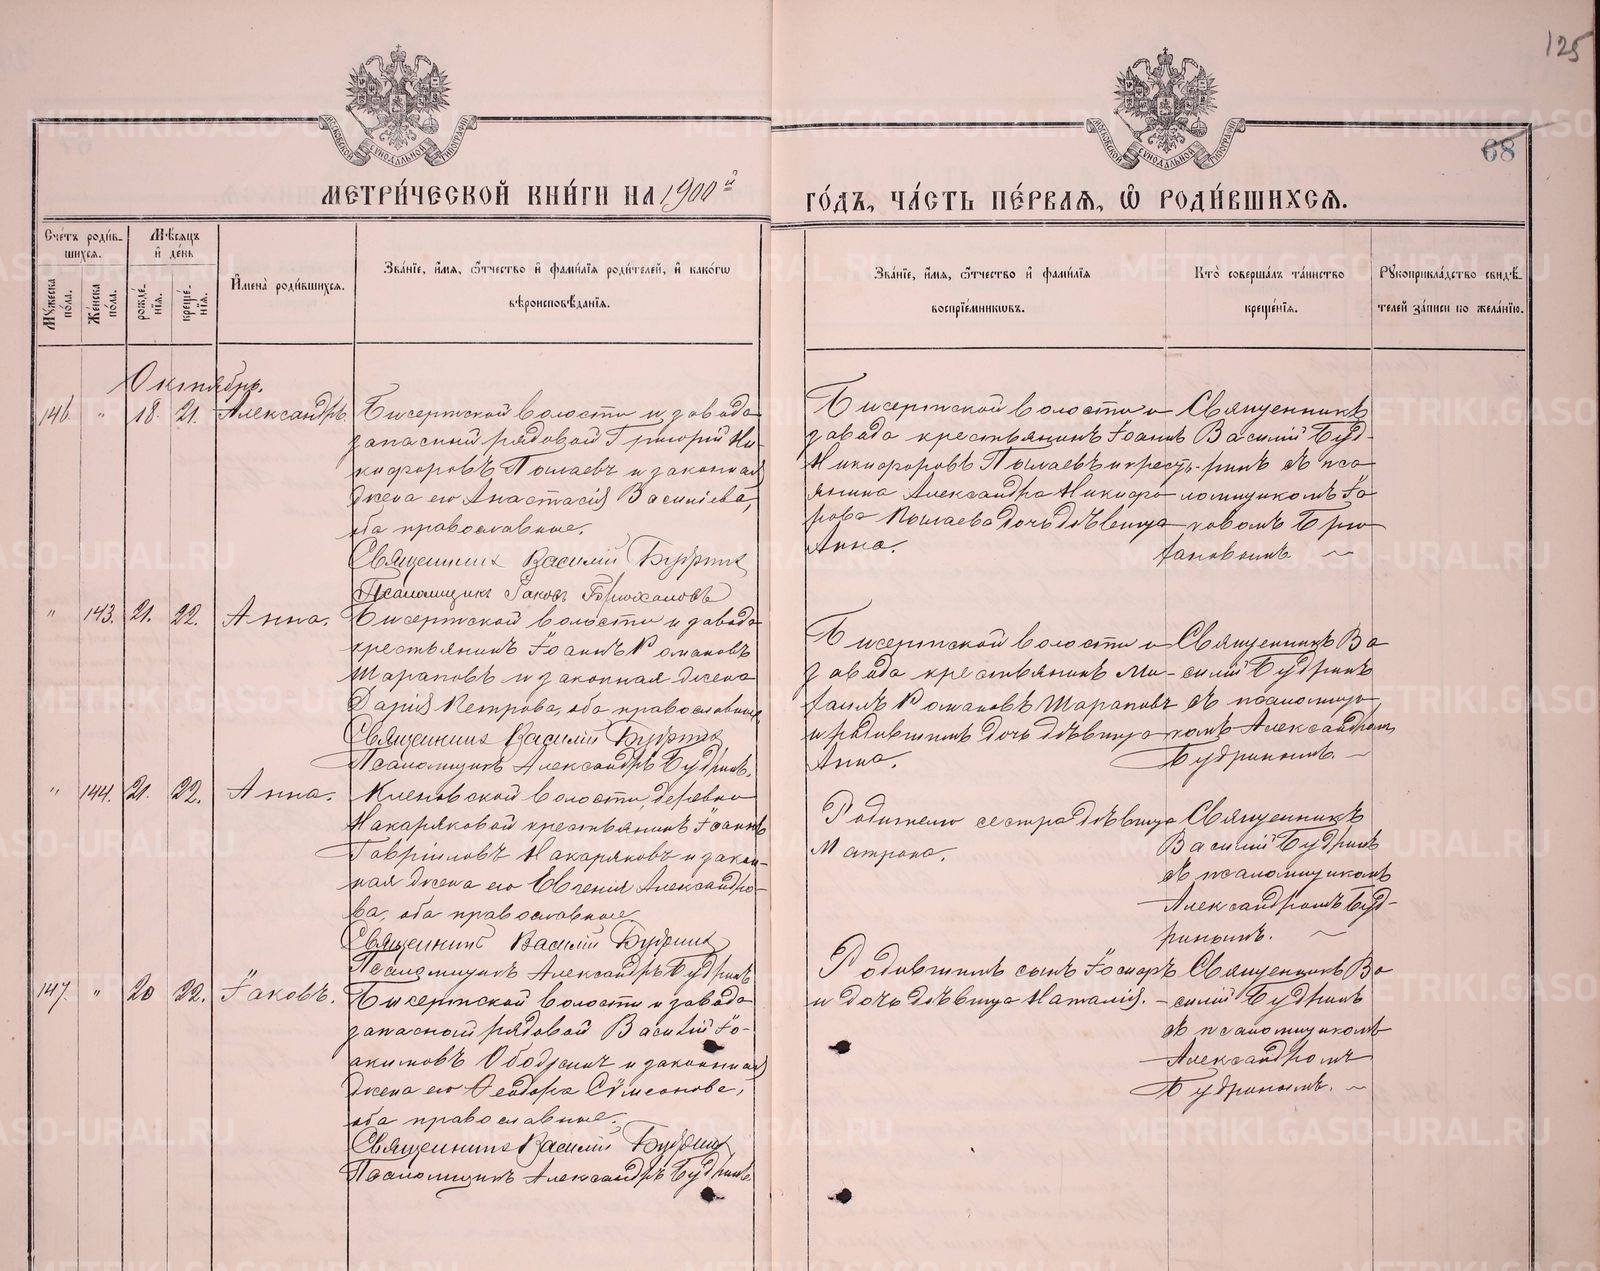 125
68
МОСКОВСКОЙ СѴНОДАЛЬНОЙ ТИПОГРАФІИ
МОСКОВСКОЙ СѴНОДАЛЬНОЙ ТИПОГРАФІИ
МЕТРИ́ЧЕСКОЙ КНИ́ГИ НА 1900й
ГО́ДЪ, ЧА́СТЬ ПЕ́РВАЯ, Ѡ҆ РОДИ́ВШИХСЯ.
Сче́тъ роди́в-
шихся.
Мꙋжеска по́ла.
Же́нска по́ла.
Мѣ́сяцъ
и҆ де́нь
рожде́-
нїя.
креще́-
нїя.
И҆мена̀ роди́вшихся.
Зва́нїе, и҆́мя, ѻ҆́тчество и҆ фами́лїя роди́телей, и҆ како́гѡ
вѣроисповѣ́данїя.
Зва́нїе, и҆́мя, ѻ҆́тчество и҆ фами́лїя
воспрїе́мникѡвъ.
Кто̀ соверша́лъ та́инство
креще́нїя.
Рꙋкоприкла́дство свидѣ́-
телей за́писи по жела́нїю.
Октябрь.
146 " 18. 21. Александръ.
Бисертской волости и завода
запасный рядовой Григорій Ни-
кифоровъ Пылаевъ и законная
жена его Анастасія Васильева,
оба православные.
Священникъ Василій Будринъ
Псаломщикъ Іаковъ
Бисертской волости и
завода крестьянинъ Іоаннъ
Никифоровъ Пылаевъ и кресть-
янина Александра Никифо-
рова Пылаева дочь дѣвица
Анна.
Священникъ
Василій Буд-
ринъ съ пса-
ломщикомъ Іа-
ковомъ
" 143. 21. 22. Анна.
Бисертской волости и завода
крестьянинъ Іоаннъ Романовъ
Шараповъ и законная жена
Дарія Петрова, оба православные
Священникъ Василій Будринъ
Псаломщикъ Александръ Будринъ.
Бисертской волости и
завода крестьянинъ Ми-
хаилъ Романовъ Шараповъ
и родившимъ дочь дѣвица
Анна.
Священникъ Ва-
силій Будринъ
съ псаломщи-
комъ Александромъ
Будринымъ.
" 144. 21. 22. Анна.
Кленовской волости, деревни
Накаряковой крестьянинъ Іоаннъ
Гавріиловъ Накаряковъ и закон-
ная жена его Евгенія Александро-
ва, оба православные
Священникъ Василій Будринъ
Псаломщикъ Александръ Будринъ
Родителю сестра дѣвица
Матрона.
Священникъ
Василій Будринъ
съ псаломщикомъ
Александромъ Буд-
ринымъ.
147. " 20 22. Іаковъ.
Бисертской волости и завода
запасный рядовой Василій Іо-
акимовъ и законная
жена его Ѳеодора Сѵмеонова,
оба православные.
Священникъ Василій Будринъ
Псаломщикъ Александръ Будринъ.
Родившимъ сынъ
и дочь дѣвица Наталія.
Священникъ Ва-
силій Будринъ
съ псаломщикомъ
Александромъ
Будринымъ.
METRIKI.GASO-URAL.RU